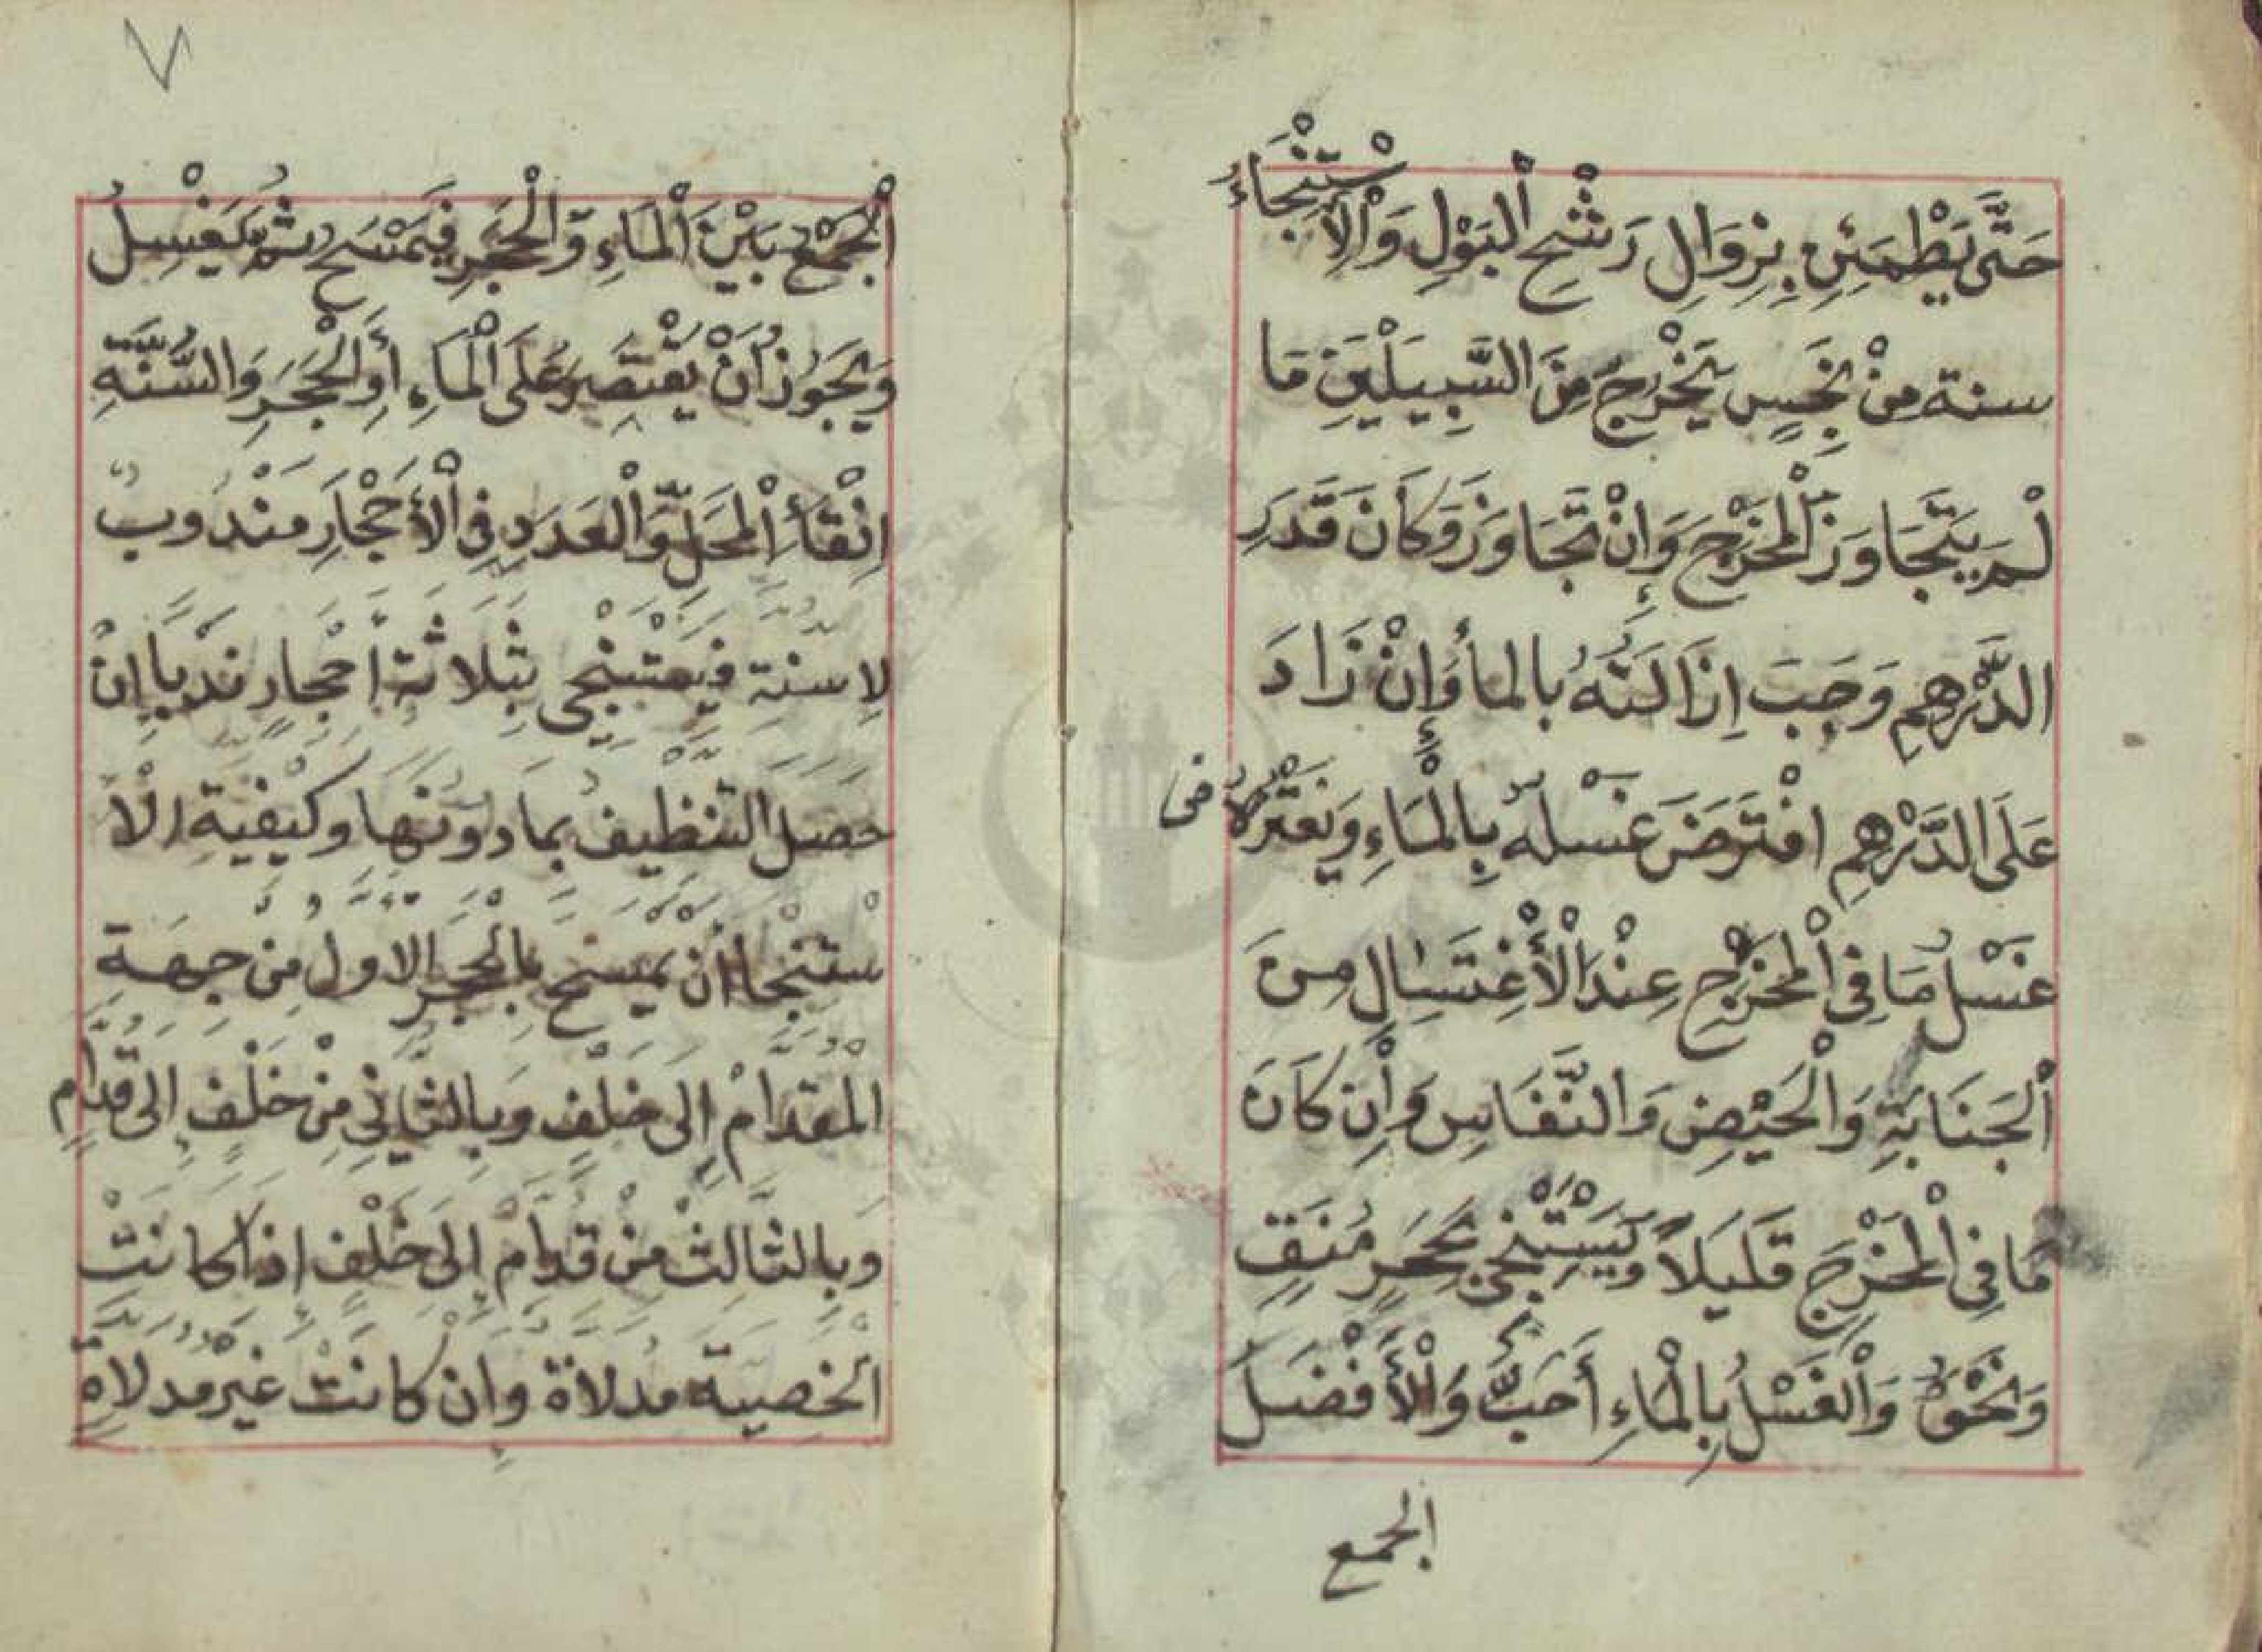 حَتَّى يَطْمَئِنَ بِزِوَالِ رَشْحِ الْبَوْلِ وَالْاِسْتِنْجَاءُ
سنة مِنْ نَجِسٍ يَخْرُجُ مِنَ السَّبِيلَيْنِ مَا
لَمْ يَتَجَاوَزَ الْمَخْرَجَ وَإِنْ تَجَاوَزَ وَكَانَ قَدَرَ
الدَّرْهِمِ وَجَبَ اِزَالَتُهُ بالماٴ وَإِنْ زَادَ
عَلَى الدَّرْهِمِ افْتَرَضَ غَسْلُهُ بِالْمَاءِ وَيَفْتَرْضُ فى
غَسْلُ مَا فِى الْمَخْرَجِ عِنْدَ الْأَغْتِسَالِ مِنَ
الْجَنَابَةِ وَالْحَيْضِ وَالنَّفَاسِ وَاِنْ كَانَ
مَا فِى الْمَخْرَجِ قَلَيَلاً وَيَسْتِنْجِى بِحَجَرٍ مُنَقٍ
وَنَحْوَهُ وَالْغَسْلُ بِالْمَاءِ أَحَبُّ وَالْأَفْضَلَ
الجمع
٧
الْجَمْعُ بَيْنَ الْمَاءِ وَالْحَجَرِ فَيَمْسَحُ ثُمَّ يَغْسِلُ
وَيَجَوُزُ أَنْ يَقْتَصِرَ عَلَى الْمَاءِ أَوِ الْحَجَرِ وَالسُّنَّةِ
اِنْقَأ الْمَحَلِّ وَالْعَدَدِ فِى الْأَحْجَارِ مَنْدُوبٌ
لاِ سُنَّةِ فَيَسْتَنْجِى بِثَلاَثَةِ أَحْجَارٍ نَدْبًا اِنْ
حَصَلَ التَّنْظِيفُ بمَا دُونَهَا وَكَيْفِيَةِ الْاَ
سْتِنْجَا أَنْ يَمْسَحَ بِالْحَجَرِ الاَوَّلِ مِنْ جِهَةَ
الْمُقَدَّامْ إِلَى خَلْفٍ وَبِالثَّانِى مِنْ خَلْفٍ إِلَى قُدَّامٍ
وَبِالثَّالِثْ مِنْ قُدَّامْ إِلَى خَلْفٍ إِذَا كَانَتْ
الْخُصْيَة مُدَلاَّةً وَاِن كَانَتْ غَيْرَ مُدَلاَّةٍ